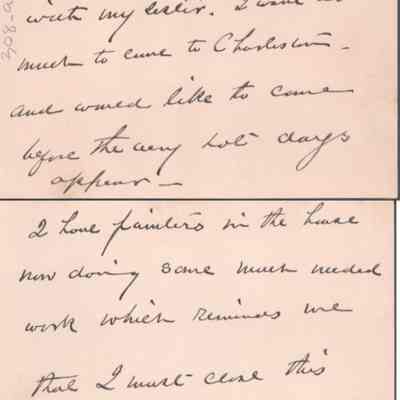 308-a
with my sister. I want so
much to come to Charleston -
and would like to come
before the very hot days
appear —
I have painters in the house
now doing some much needed
work which reminds me
that I must close this